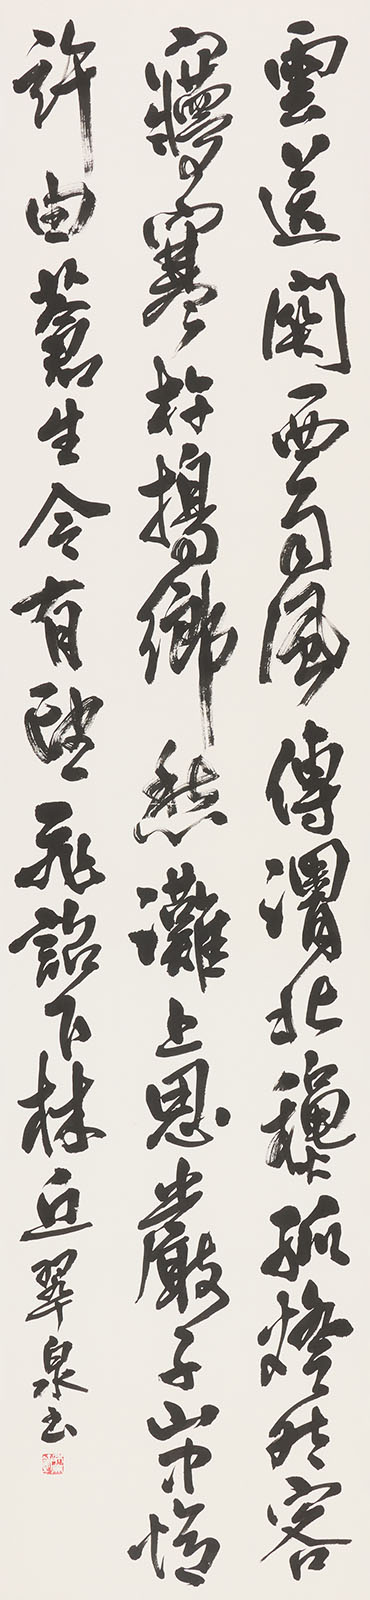 雲送關西雨風傳渭北龝孤燈然客
㝱寒杵搗鄉愁灘上思嚴子山中憶
許由蒼生今有望飛詔下林丘 翠泉書